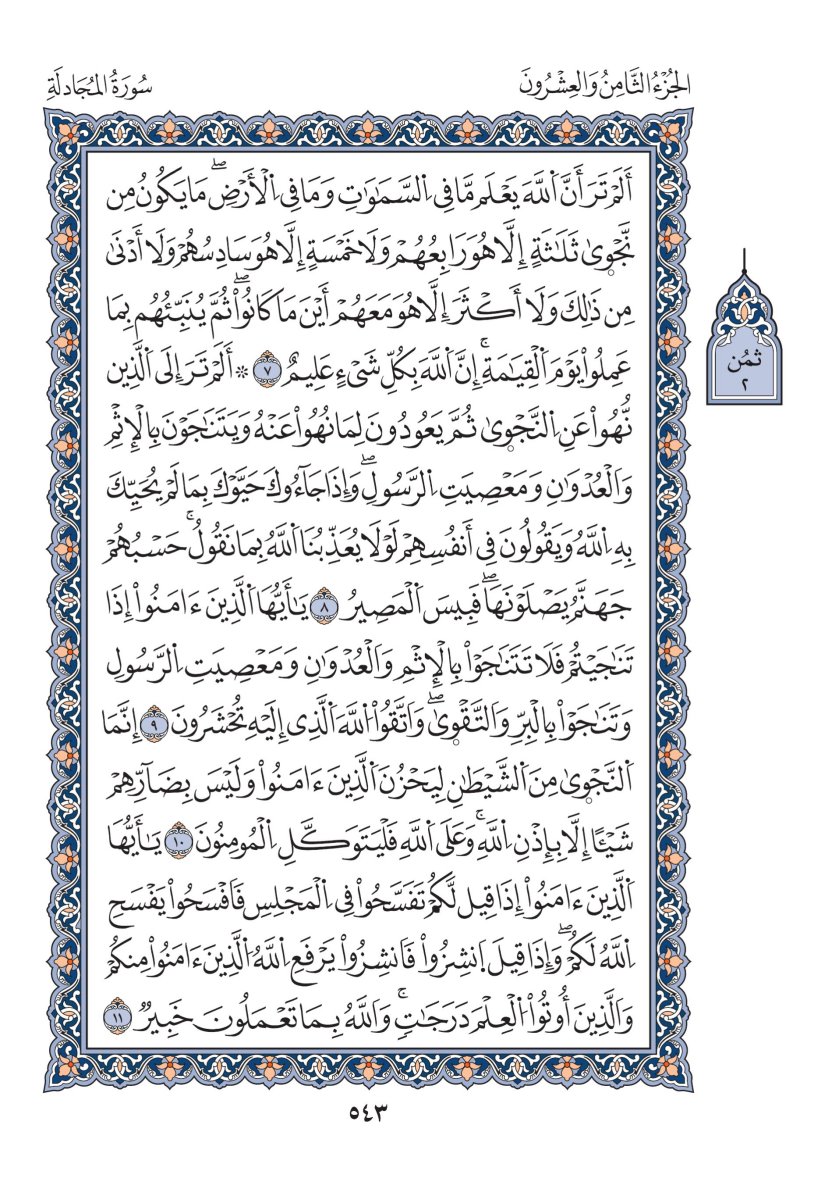 الجُزْءُ الثَّامِنُ وَالعِشْرُونَ
سُورَةُ المُجَادلَةِ
أَلَمْ تَرَ أَنَّ اَ۬للَّهَ يَعْلَمُ مَا فِے اِ۬لسَّمَٰوَٰتِ وَمَا فِے اِ۬لْأَرْضِۖ مَا يَكُونُ مِن
نَّجْو۪يٰ ثَلَٰثَةٍ إِلَّا هُوَ رَابِعُهُمْ وَلَا خَمْسَةٍ إِلَّا هُوَ سَادِسُهُمْ وَلَا أَدْنَىٰ
مِن ذَٰلِكَ وَلَا أَكْثَرَ إِلَّا هُوَ مَعَهُمْ أَيْنَ مَا كَانُواْۖ ثُمَّ يُنَبِّئُهُم بِمَا
عَمِلُواْ يَوْمَ اَ۬لْقِيَٰمَةِۚ إِنَّ اَ۬للَّهَ بِكُلِّ شَےْءٍ عَلِيمٌ ٧ ۞ أَلَمْ تَرَ إِلَى اَ۬لَّذِينَ
نُهُواْ عَنِ اِ۬لنَّجْو۪يٰ ثُمَّ يَعُودُونَ لِمَا نُهُواْ عَنْهُ وَيَتَنَٰجَوْنَ بِالْإِثْمِ
وَالْعُدْوَٰنِ وَمَعْصِيَتِ اِ۬لرَّسُولِۖ وَإِذَا جَآءُوكَ حَيَّوْكَ بِمَا لَمْ يُحَيِّكَ
بِهِ اِ۬للَّهُ وَيَقُولُونَ فِے أَنفُسِهِمْ لَوْلَا يُعَذِّبُنَا اَ۬للَّهُ بِمَا نَقُولُۚ حَسْبُهُمْ
جَهَنَّمُ يَصْلَوْنَهَاۖ فَبِيسَ اَ۬لْمَصِيرُ ٨ يَٰأَيُّهَا اَ۬لَّذِينَ ءَامَنُواْ إِذَا
تَنَٰجَيْتُمْ فَلَا تَتَنَٰجَوْاْ بِالْإِثْمِ وَالْعُدْوَٰنِ وَمَعْصِيَتِ اِ۬لرَّسُولِ
وَتَنَٰجَوْاْ بِالْبِرِّ وَالتَّقْو۪يٰۖ وَاتَّقُواْ اُ۬للَّهَ اَ۬لَّذِے إِلَيْهِ تُحْشَرُونَ ٩ إِنَّمَا
اَ۬لنَّجْو۪يٰ مِنَ اَ۬لشَّيْطَٰنِ لِيَحْزُنَ اَ۬لَّذِينَ ءَامَنُواْ وَلَيْسَ بِضَآرِّهِمْ
شَيْـًٔا إِلَّا بِإِذْنِ اِ۬للَّهِۚ وَعَلَى اَ۬للَّهِ فَلْيَتَوَكَّلِ اِ۬لْمُومِنُونَ ١٠ يَٰأَيُّهَا
اَ۬لَّذِينَ ءَامَنُواْ إِذَا قِيلَ لَكُمْ تَفَسَّحُواْ فِے اِ۬لْمَجْلِسِ فَافْسَحُواْ يَفْسَحِ
اِ۬للَّهُ لَكُمْۖ وَإِذَا قِيلَ اَ۪نشِزُواْ فَانشِزُواْ يَرْفَعِ اِ۬للَّهُ اُ۬لَّذِينَ ءَامَنُواْ مِنكُمْ
وَالَّذِينَ أُوتُواْ اُ۬لْعِلْمَ دَرَجَٰتٍۚ وَاللَّهُ بِمَا تَعْمَلُونَ خَبِيرٌ ١١
ثمُن
٢
٥٤٣